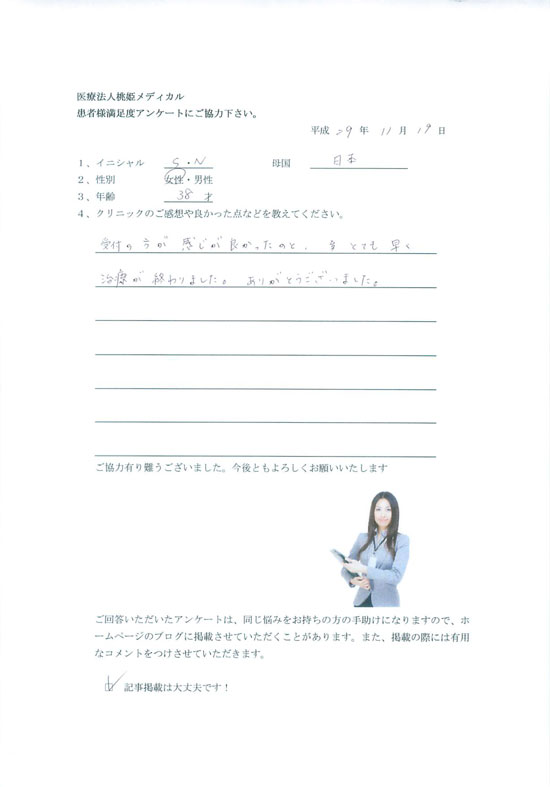 医療法人桃姫メディカル
患者様満足度アンケートにご協力下さい。
平成 29 年 11 月 19 日
1、イニシャル S・N 母国 日本
2、性別 女性・男性
3、年齢 38 才
4、クリニックのご感想や良かった点などを教えてください。
受付の方が 感じが良かったのと、 とても 早く
治療が 終わりました。 ありがとうございました。
ご協力有り難うございました。今後ともよろしくお願いいたします
ご回答いただいたアンケートは、同じ悩みをお持ちの方の手助けになりますので、ホ
ームページのブログに掲載させていただくことがあります。また、掲載の際には有用
なコメントをつけさせていただきます。
記事掲載は大丈夫です！